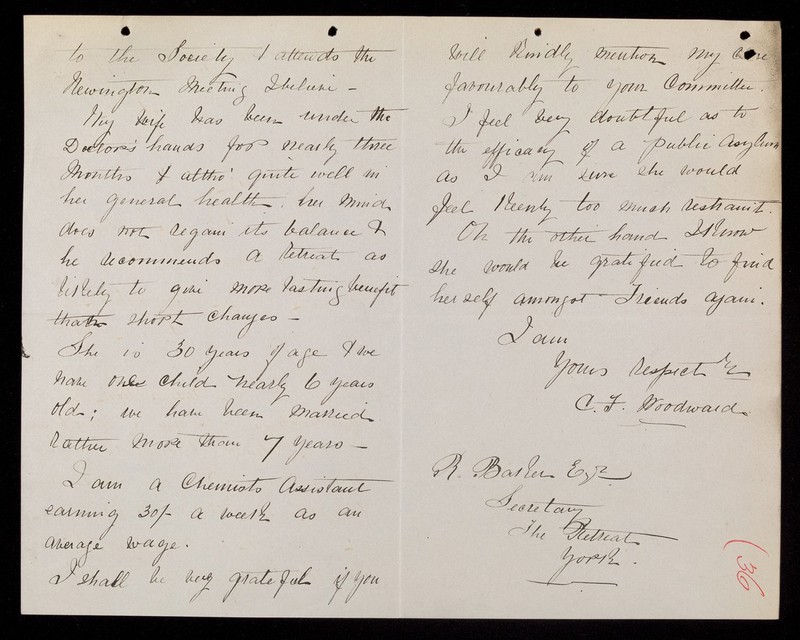 to the Society & attends the
Newington Meeting I believe –
My wife has been under the
Doctor's hands for nearly three
Months & altho' quite well in
her general health, her mind
does not regain its balance &
he recommends a retreat as
likely to give more lasting benefit
than short changes –
She is 30 years of age & we
have one child nearly 6 years
old; we have been married
rather more than 7 years –
I am a Chemists Assistant
earning 30/- a week as an
average wage.
I shall be very grateful if you
will kindly mention my case
favourably to your Committee.
I feel very doubtful as to
the efficacy of a public Asylum
as I am sure she would
feel keenly too much restraint.
On the other hand I know
she would be gratified to find
herself amongst Friends again.
I am
Yours respectly
C. F. Woodward.
R. Barker Esqr
Secretary
The Retreat
York.
(36